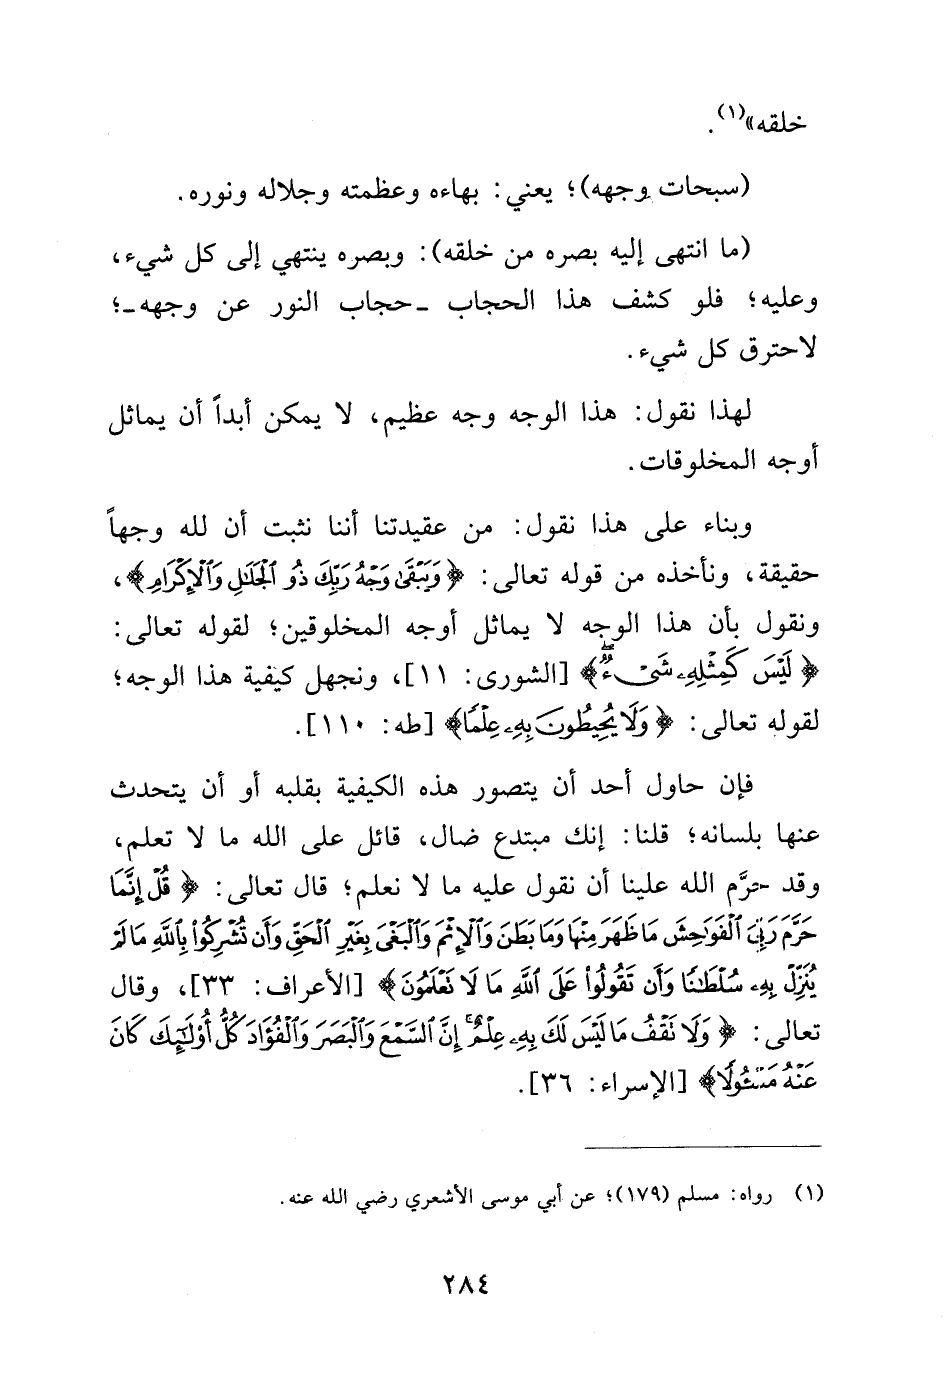 خلقه»(١).
(سبحات وجهه)؛ يعني: بهاءه وعظمته وجلاله ونوره.
(ما انتهى إليه بصره من خلقه): وبصره ينتهي إلى كل شيء،
وعليه؛ فلو كشف هذا الحجاب ـ حجاب النور عن وجهه ـ؛
لاحترق كل شيء.
لهذا نقول: هذا الوجه وجه عظيم، لا يمكن أبداً أن يماثل
أوجه المخلوقات.
وبناء على هذا نقول: من عقيدتنا أننا نثبت أن لله وجهاً
حقيقة، ونأخذه من قوله تعالى: ﴿وَيَبْقَىٰ وَجْهُ رَبِّكَ ذُو ٱلْجَلَٰلِ وَٱلْإِكْرَامِ﴾،
ونقول بأن هذا الوجه لا يماثل أوجه المخلوقين؛ لقوله تعالى:
﴿لَيْسَ كَمِثْلِهِۦ شَىْءٌ ۖ﴾ [الشورى: ١١]، ونجهل كيفية هذا الوجه؛
لقوله تعالى: ﴿وَلَا يُحِيطُونَ بِهِۦ عِلْمًا﴾ [طه: ١١٠].
فإن حاول أحد أن يتصور هذه الكيفية بقلبه أو أن يتحدث
عنها بلسانه؛ قلنا: إنك مبتدع ضال، قائل على الله ما لا تعلم،
وقد حرَّم الله علينا أن نقول عليه ما لا نعلم؛ قال تعالى: ﴿قُلْ إِنَّمَا
حَرَّمَ رَبِّىَ ٱلْفَوَٰحِشَ مَا ظَهَرَ مِنْهَا وَمَا بَطَنَ وَٱلْإِثْمَ وَٱلْبَغْىَ بِغَيْرِ ٱلْحَقِّ وَأَن تُشْرِكُوا۟ بِٱللَّهِ مَا لَمْ
يُنَزِّلْ بِهِۦ سُلْطَٰنًا وَأَن تَقُولُوا۟ عَلَى ٱللَّهِ مَا لَا تَعْلَمُونَ﴾ [الأعراف: ٣٣]، وقال
تعالى: ﴿وَلَا تَقْفُ مَا لَيْسَ لَكَ بِهِۦ عِلْمٌ ۚ إِنَّ ٱلسَّمْعَ وَٱلْبَصَرَ وَٱلْفُؤَادَ كُلُّ أُو۟لَٰٓئِكَ كَانَ
عَنْهُ مَسْـُٔولًا﴾ [الإسراء: ٣٦].
(١) رواه: مسلم (١٧٩)؛ عن أبي موسى الأشعري رضي الله عنه.
٢٨٤